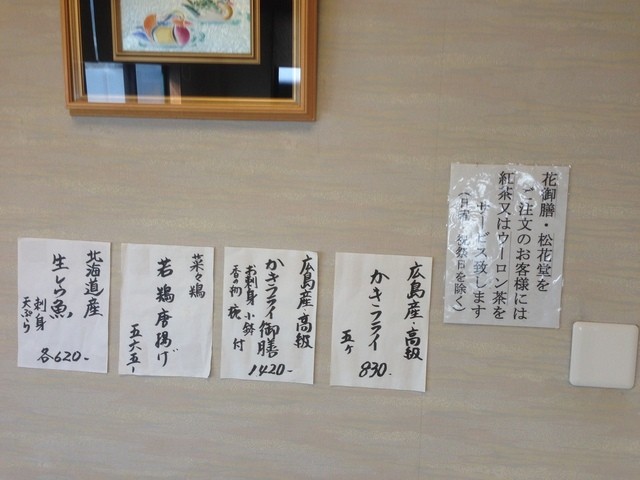 花御膳・松花堂を
ご注文のお客様には
紅茶又はウーロン茶を
サービス致します
(日・祝祭日を除く)
広島産・高級
かきフライ
五ケ
830.-
広島産・高級
かきフライ御膳
お刺身 小鉢
香の物 椀 付
1420-
菜々鶏
若鶏唐揚げ
五六五-
北海道産
生しら魚
刺身
天ぷら
各620-